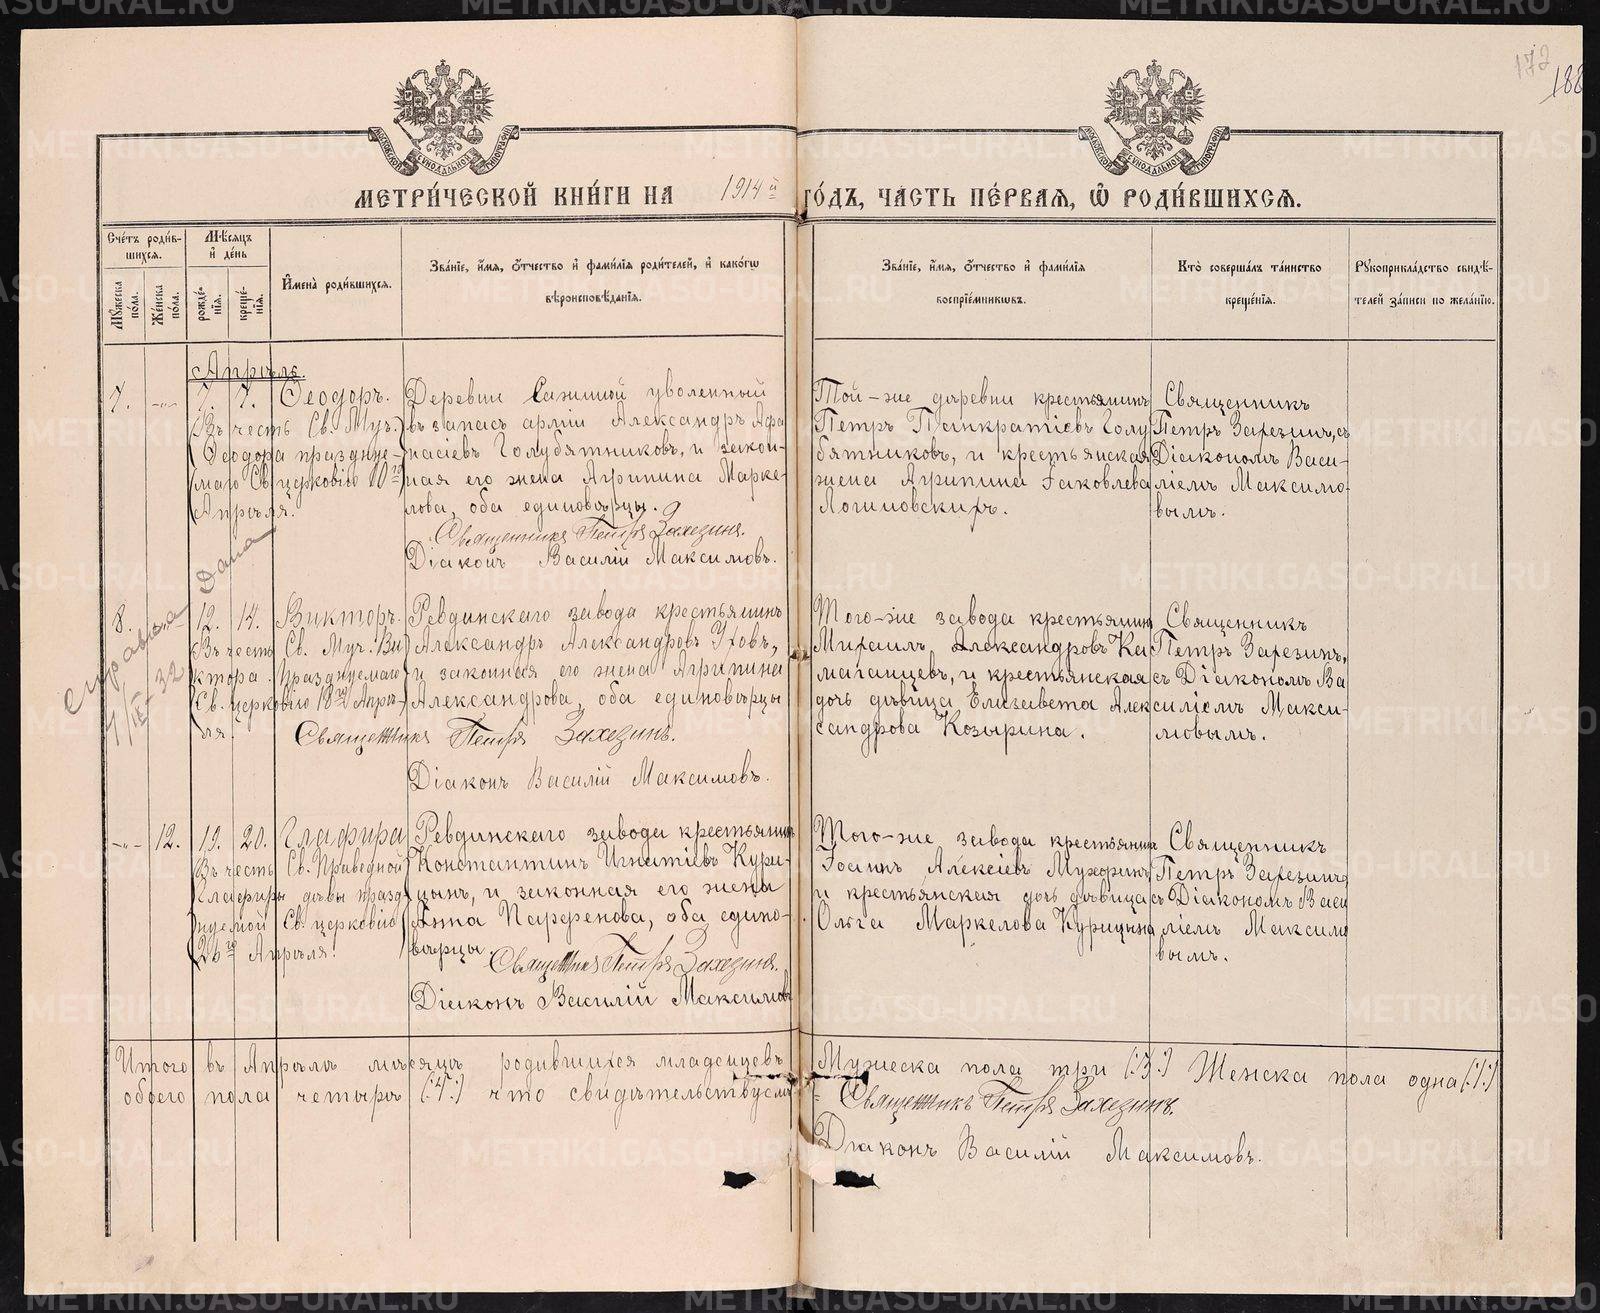 172
188
МОСКОВСКОЙ СУНОДАЛЬНОЙ ТИПОГРАФІИ
МОСКОВСКОЙ СУНОДАЛЬНОЙ ТИПОГРАФІИ
МЕТРИ́ЧЕСКОЙ КНИ́ГИ НА 1914й ГО́ДЪ, ЧА́СТЬ ПЕ́РВАЯ, Ѡ РОДИ́ВШИХСѦ.
Сче́тъ роди́в-
шихсѧ.
Мꙋ́жеска по́ла.
Же́нска по́ла.
Мѣ́сѧцъ
и҆ де́нь
рожде́-
нїѧ.
креще́-
нїѧ.
И҆мена̀ роди́вшихсѧ.
Зва́нїе, и҆́мѧ, ѻ҆́тчество и҆ фами́лїѧ роди́телей, и҆ како́гѡ
вѣроисповѣ́данїѧ.
Зва́нїе, и҆́мѧ, ѻ҆́тчество и҆ фами́лїѧ
воспрїе́мникѡвъ.
Кто̀ соверша́лъ та́инство
креще́нїѧ.
Рꙋкоприкла́дство свидѣ́-
телей за́писи по жела́нїю.
Апрѣль.
7. -„- 7. 7. Ѳеодоръ.
(Въ честь Св. Муч.
Ѳеодора праздnуе-
маго Св. церковію 10го
Апрѣля.
Деревни уволенный
въ запасъ арміи Александръ Афа
насіевъ Голубятниковъ, и закон-
ная его жена Агрипина Марке-
лова, оба единовѣрцы.
Священникъ Петръ Захезинъ.
Діаконъ Василій Максимовъ.
Той-же деревни крестьянинъ
Петръ Панкратіевъ Голу
бятниковъ, и крестьянская
жена Агрипина Іаковлева
Логиновскихъ.
Священникъ
Петръ Захезинъ, съ
Діакономъ Васи-
ліемъ Максимо-
вымъ.
справка Дана
8. 12. 14. Викторъ.
Въ честь Св. Муч. Ви
ктора. Празднуемаго
Св. церковію 18го Апрѣ-
ля.
Ревдинскаго завода крестьянинъ
Александръ Александровъ Уховъ,
и законная его жена Агрипина
Александрова, оба единовѣрцы
Священникъ Петръ Захезинъ.
Діаконъ Василій Максимовъ.
Того-же завода крестьянинъ
Михаилъ Александровъ Ка
маганцевъ, и крестьянская
дочь дѣвица Елизавета Алек
сандрова Козырина.
Священникъ
Петръ Захезинъ,
съ Діакономъ Ва
силіемъ Макси-
мовымъ.
-„- 12. 19. 20. Глафира
Въ честь Св. Праведной
Глафиры дѣвы празд
нуемой Св. церковію
26го Апрѣля.
Ревдинскаго завода крестьянинъ
Константинъ Игнатіевъ Кури-
цынъ, и законная его жена
Анна Парфенова, оба едино-
вѣрцы.
Священникъ Петръ Захезинъ.
Діаконъ Василій Максимовъ
Того-же завода крестьянинъ
Іоаннъ Алексіевъ Мухоринъ
и крестьянская дочь дѣвица
Ольга Маркелова Курицына
Священникъ
Петръ Захезинъ
съ Діакономъ Васи
ліемъ Максимо
вымъ.
Итого въ Апрѣлѣ мѣсяцѣ родившихся младенцевъ Мужеска пола три (:3:) Женска пола одна (:1:)
обоего пола четыре (:4:) что свидѣтельствуемъ
Священникъ Петръ Захезинъ.
Діаконъ Василій Максимовъ.
METRIKI.GASO-URAL.RU